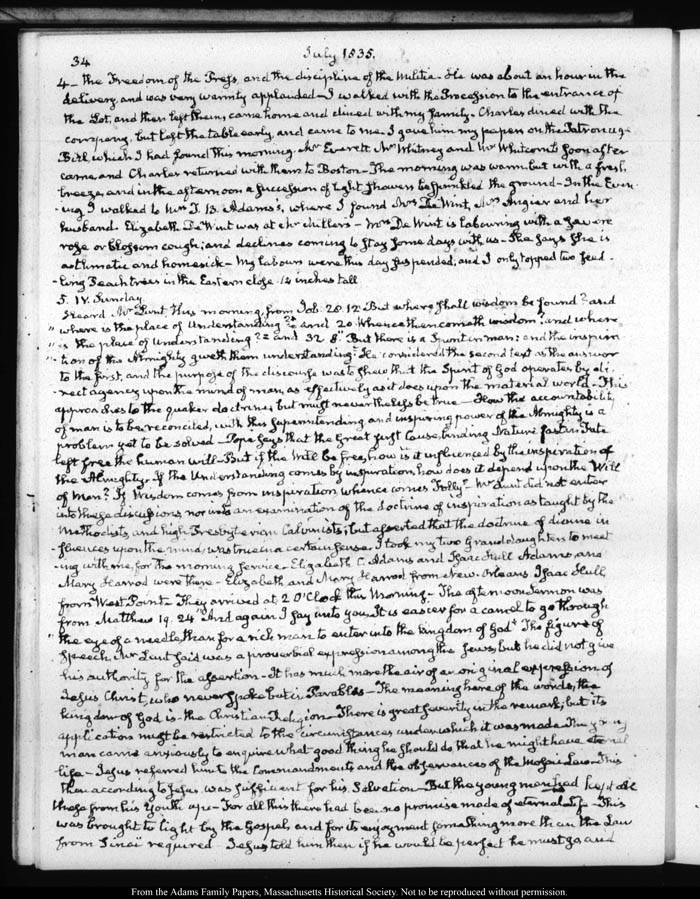 34
July 1835.
4— the Freedom of the Press, and the discipline of the Militia. He was about an hour in the
delivery, and was very warmly applauded— I walked with the Procession to the entrance of
the Lot, and then left them, came home and dined with my family. Charles dined with the
company, but left the table early, and came to me. I gave him my papers on the Patronage
Bill, which I had found this morning. Mr Everett, Mr Whitney and Mr Whitcomb soon after
came and Charles returned with them to Boston— The morning was warm but with a fresh
breeze, and in the afternoon a succession of light showers besprinkled the ground— In the Even-
-ing I walked to Mrs T. B. Adams's, where I found Mrs De Wint, Mrs Angier and her
husband. Elizabeth De Wint was at Mr Miller's— Mrs De Wint is labouring with a severe
rose or blossom cough; and declines coming to stay some days with us— She says she is
asthmatic and homesick— My labours were this day suspended, and I only topped two seed-
-ling Peach trees in the Eastern close 14 inches tall
5. IV. Sunday
Heard Mr Lunt, this morning, from Job. 28. 12. But where shall wisdom be found? and
" where is the place of Understanding?" and 20. Whence then cometh wisdom? and where
" is the place of Understanding?" and 32. 8. "But there is a Spirit in man: and the inspira-
"-tion of the Almighty giveth them understanding." He considered the second text as the answer
to the first, and the purpose of the discourse was to shew that the Spirit of God operates by di-
-rect agency upon the mind of man, as effectively as it does upon the material world— This
approaches to the quaker doctrines but must nevertheless be true— How the accountability
of man is to be reconciled, with this superintending and inspiring power of the Almighty is a
problem yet to be solved— Pope says that the Great first Cause, binding Nature fast in Fate
left free the human will— But if the Will be free, how is it influenced by the inspiration of
the Almighty. If the Understanding comes by inspiration, how does it depend upon the Will
of Man? If Wisdom comes from inspiration, whence comes Folly?— Mr Lunt did not enter
into these discussions, nor into an examination of the doctrine of inspiration as taught by the
Methodists and high Presbyterian Calvinists; but asserted that the doctrine of divine in-
-fluences upon the mind, was true in a certain sense. I took my two Grand daughters to meet-
-ing with me, for the morning service. Elizabeth C. Adams and Isaac Hull Adams, and
Mary Harrod were there— Elizabeth and Mary Harrod from New Orleans. Isaac Hull,
from West Point— They arrived at 2 O'Clock this Morning— The afternoon Sermon was
from Matthew 19. 24. "And again I say unto you. It is easier for a camel to go through
" the eye of a needle, than for a rich man to enter into the kingdom of God" The figure of
speech Mr Lunt said was a proverbial expression among the Jews, but he did not give
his authority for the assertion— It has much more the air of an original expression of
Jesus Christ, who never spoke but in Parables— The meaning here of the words, the
kingdom of God is the Christian Religion— There is great severity in the remark; but its
application must be restricted to the circumstances under which it was made. The young
man came anxiously to enquire what good thing he should do that he might have eternal
life— Jesus referred him to the Commandments and the observances of the Mosaic Law— This
then according to Jesus was sufficient for his Salvation— But the young man had kept all
these from his Youth up— For all this there had been no promise made of eternal Life— This
was brought to light by the Gospel, and for its enjoyment something more than the Law
from Sinai required. Jesus told him then if he would be perfect he must go and
From the Adams Family Papers, Massachusetts Historical Society. Not to be reproduced without permission.